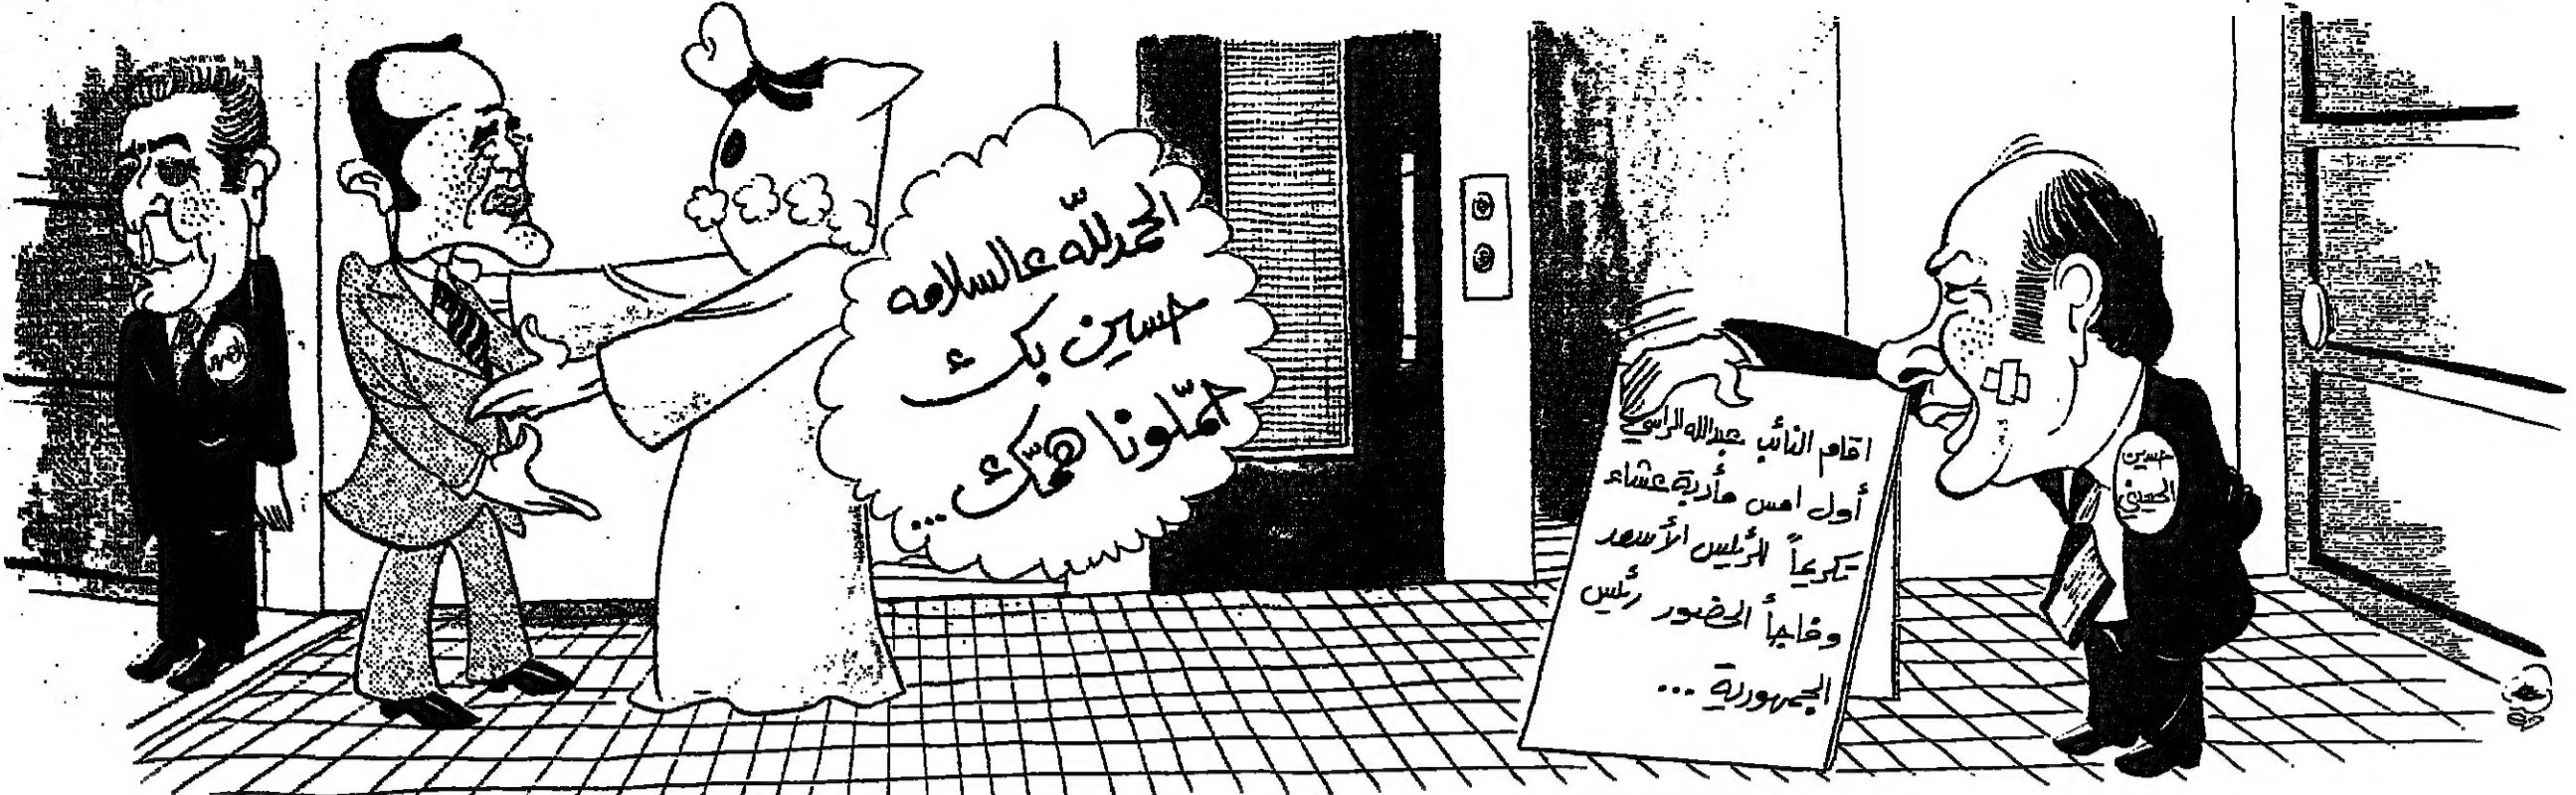 الحمد لله عالسلامه
حسين بك
حمّلونا همّك...
اقام النائب عبدالله الراسي
أول امس مأدبة عشاء
تكريماً للرئيس الأسعد
وفاجأ الحضور رئيس
الجمهورية ...
حسين
الحسيني